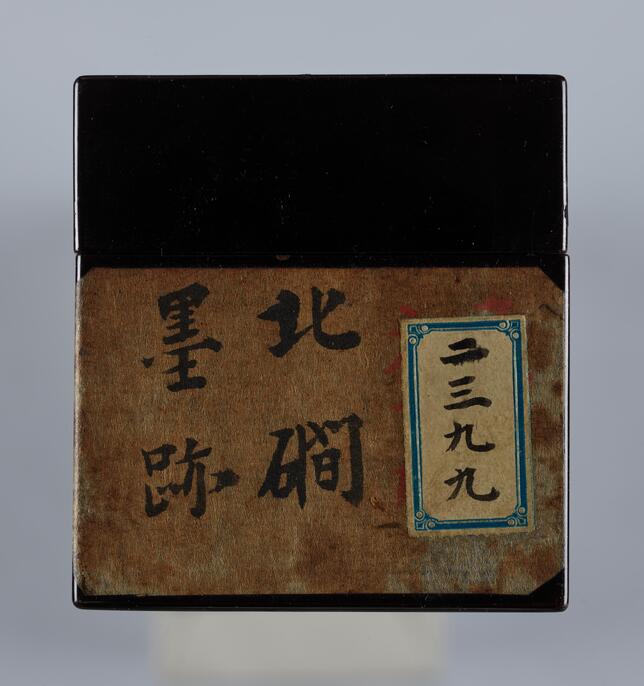 二三九九
北磵
墨跡